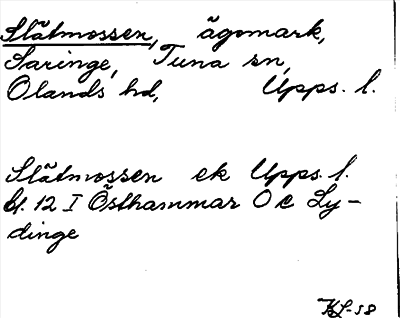 Slåtmossen, ägomark,
Saringe, Tuna sn,
Olands hd, Upps. l.
Slåtmossen ek Upps. l.
bl. 12 I Östhammar O C Ly-
dinge
KL-58